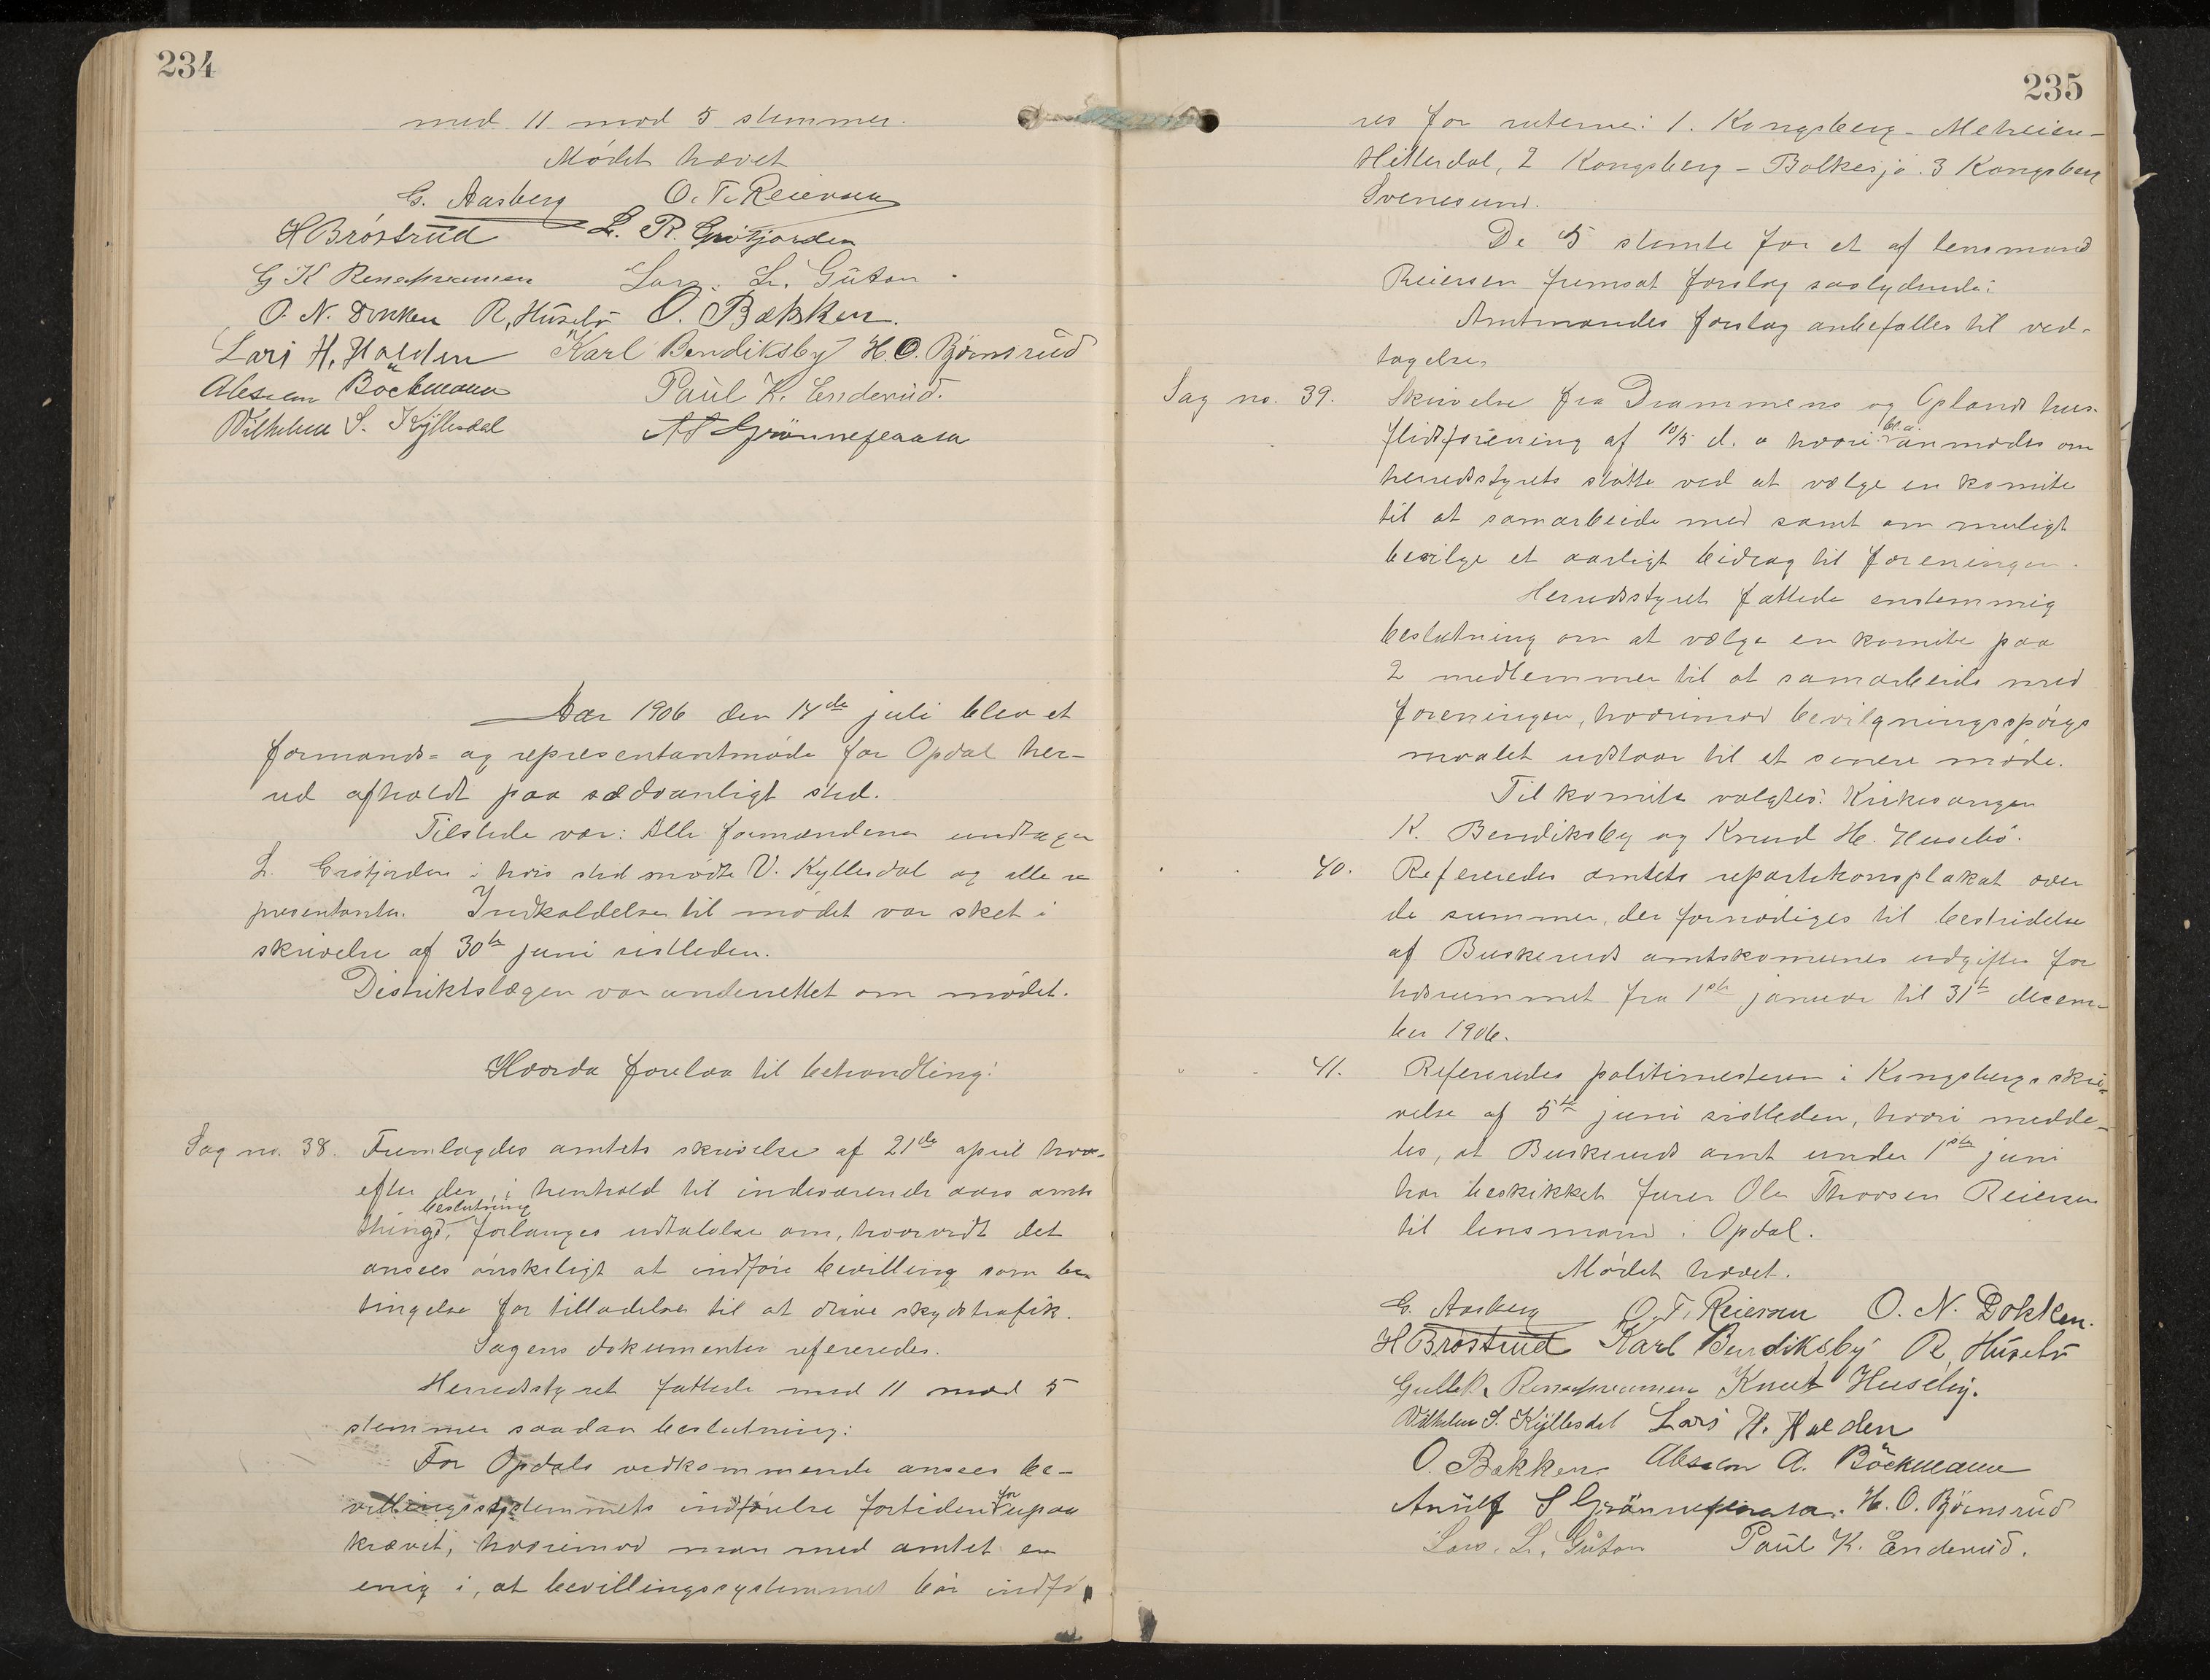 234
med 11 mod 5 stemmer.
Mödet hævet
G. Aasberg O. T. Reiersen
H Bröstrud L. R. Grötjorden
G K Lars L. Güton
O. N. Dokken R. Huseby O. Bakken.
Lars H. Halden Karl Bendiksby H. O. Björnsrud
Absalon Böckmann Paul K. Enderud.
Vilhelm S. Kyllesdal A S Grönneflaata
Aar 1906 den 14de juli blev et
formands- og representantmöde for Opdal her-
red afholdt paa sædvanligt sted.
Tilstede var: Alle formændene undtagen
L. Grötjorden i hvis sted mödte V. Kyllesdal og alle re
presentanter. Indkaldelse til mödet var sket i
skrivelse af 30te juni sistleden.
Distriktslægen var underrettet om mödet.
Hvorda forelaa til behandling:
Sag no. 38. Fremlagdes amtets skrivelse af 21de april hvor-
efter der, i henhold til indeværende aars amts
beslutning
things, forlanges udtalelse om, hvorvidt det
ansees önskeligt at indföre bevilling som be
tingelse for tilladelse til at drive skydstrafik.
Sagens dokumenter refereredes.
Herredsstyret fattede med 11 mod 5
stemmer saadan beslutning:
For Opdals vedkommende ansees be-
villingssystemmets indförelse fortiden for upaa
krævet, hvorimod man med amtet er
enig i, at bevillingssystemmet bör indfö
235
res for ruterne: 1. Kongsberg - Meheien-
Hitterdal, 2 Kongsberg - Bolkesjö. 3 Kongsberg
Svenesund.
De 5 stemte for et af lensmand
Reiersen fremsat forslag saalydende:
Amtmandes forslag anbefalles til ved-
tagelse.
Sag no. 39. Skrivelse fra Drammens og Oplands hus-
flidsforening af 10/5 d. a hvori bl. a. anmodes om
herredsstyrets stötte ved at vælge en komite
til at samarbeide med samt om muligt
bevilge et aarligt bidrag til foreningen.
Herredsstyret fattede enstemmig
beslutning om at vælge en komite paa
2 medlemmer til at samarbeide med
foreningen, hvorimod bevilgningsspörgs
maalet udstaar til et senere möde.
Til komite valgtes: Kirkesanger
K. Bendiksby og Knud H. Husebö.
" " 40. Refereredes amtets repartitionsplakat over
de summer, der fornödiges til bestridelse
af Buskeruds amtskomunes udgifter for
tidsrummet fra 1ste januar til 31te decem-
ber 1906.
" " 41. Refereredes politimesteren i Kongsbergs skri-
velse af 5te juni sistleden, hvori medde-
les, at Buskeruds amt under 1ste juni
har beskikket furer Ole Thorsen Reiersen
til lensmand i Opdal.
Mödet hævet.
G. Aasberg O. T. Reiersen O. N. Dokken.
H Bröstrud Karl Bendiksby R. Huseby
Gullik Knut Huseby.
Vilhelm S. Kyllesdal Lars H. Halden
O. Bakken Absalon A. Böckmann
Anulf S Grönneflaata. H. O. Björnsrud
Lars. L. Güton Paul K. Enderud.